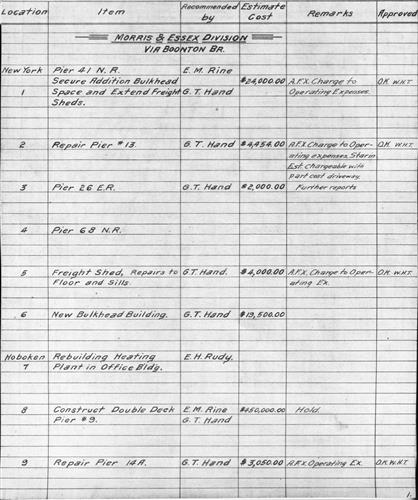 Location Item Recommended by Estimate Cost Remarks Approved
MORRIS & ESSEX DIVISION
VIA BOONTON BR.
New York Pier 41 N.R. E.M. Rine
Secure Addition Bulkhead $24,000.00 A.F.X. Charge to O.K. W.H.T.
1 Space and Extend Freight G.T. Hand Operating Expenses.
Sheds.
2 Repair Pier #13. G.T. Hand $4,454.00 A.F.X. Charge to Oper- O.K. W.H.T.
ating expenses. Storm
Est. Chargeable with
part cost driveway.
3 Pier 26 E.R. G.T. Hand $2,000.00 Further reports
4 Pier 68 N.R.
5 Freight Shed, Repairs to G.T. Hand. $4,000.00 A.F.X. Charge to Oper- O.K. W.H.T.
Floor and Sills. ating Ex.
6 New Bulkhead Building. G.T. Hand $19,500.00
Hoboken Rebuilding Heating E.H. Rudy.
7 Plant in Office Bldg.
8 Construct Double Deck E.M. Rine $450,000.00 Hold.
Pier #9. G.T. Hand
9 Repair Pier 14A. G.T. Hand $3,050.00 A.F.X. Operating Ex. O.K. W.H.T.